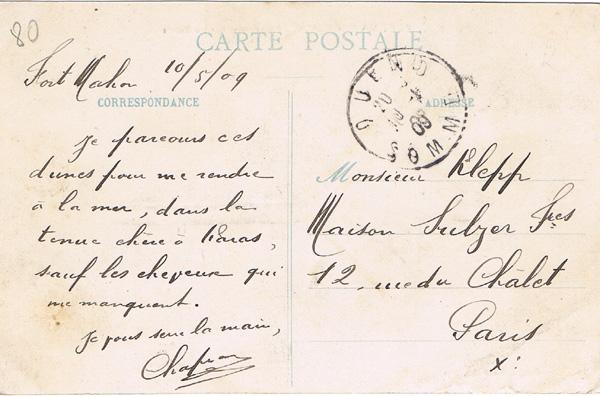 80
CARTE POSTALE
Fort Mahon 10/5/09
CORRESPONDANCE
Je parcours ces
dunes pour me rendre
à la mer, dans la
tenue chère à
sauf les cheveux qui
me manquent.
Je vous serre la main,
QUEND
SOMME
09
ADRESSE
Monsieur Klepp
Maison Sulzer Fres
12, rue du Châlet
Paris
X: